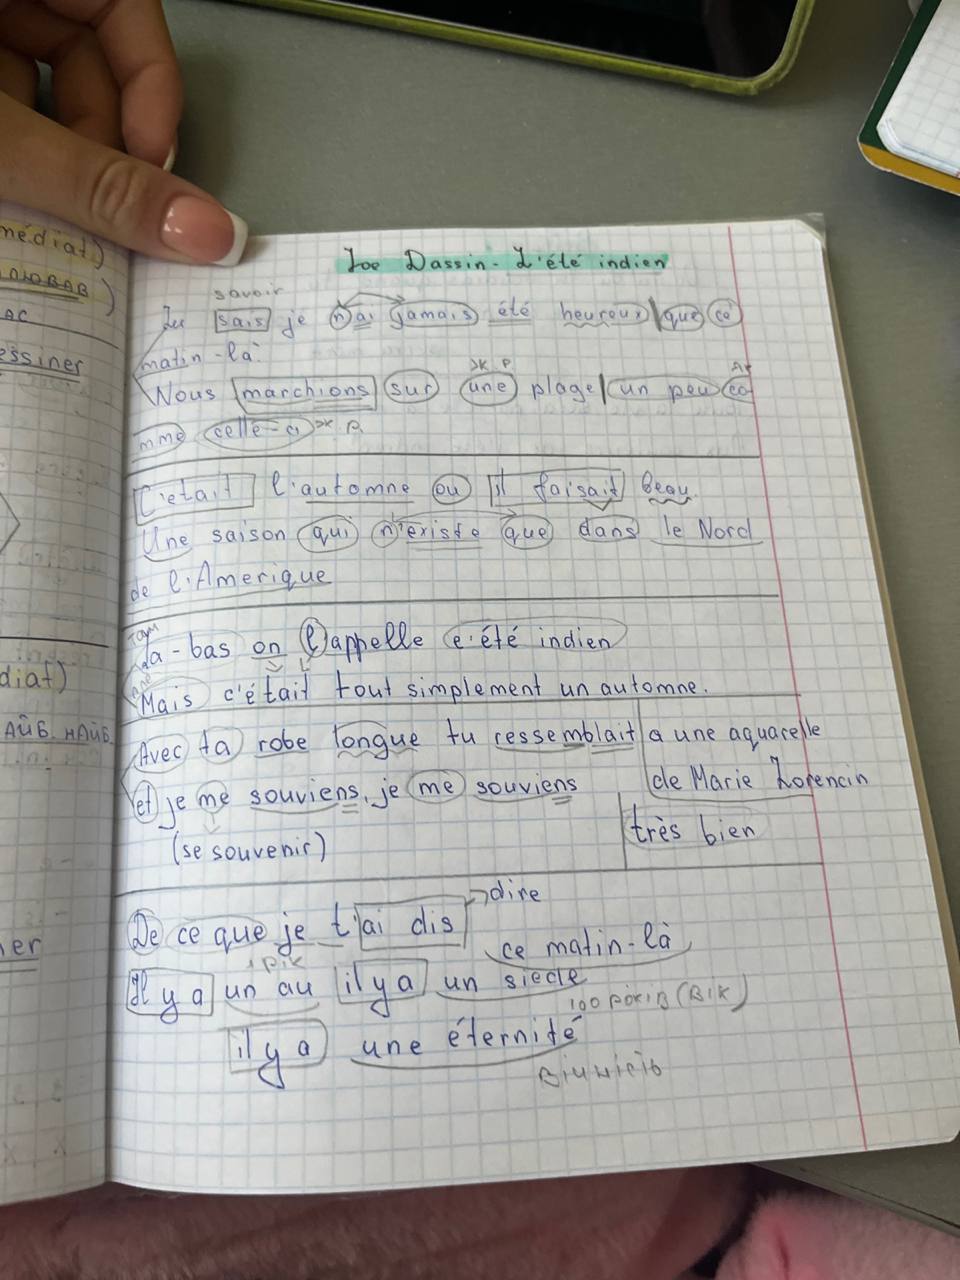 médiat)
ЛЮВАВ)
AC
essiner
diat)
АЙБ. НАЙБ.
ner
Joe Dassin - L'été indien
savoir
Tu sais je n'ai jamais été heureux que ce
matin-là.
ж р
Nous marchions sur une plage un peu co
mme celle-ci ж. р.
C'était l'automne ou il faisait beau
Une saison qui n'existe que dans le Nord
de l'Amerique
там
La-bas on l'appelle l'été indien
Mais c'était tout simplement un automne.
Avec ta robe longue tu ressemblait a une aquarelle
de Marie Lorencin
et je me souviens, je me souviens
très bien
(se souvenir)
dire
De ce que je t'ai dis
ce matin-là
1 рік
Il y a un au il y a un siecle
100 років (вік)
il y a une éternité
вічність